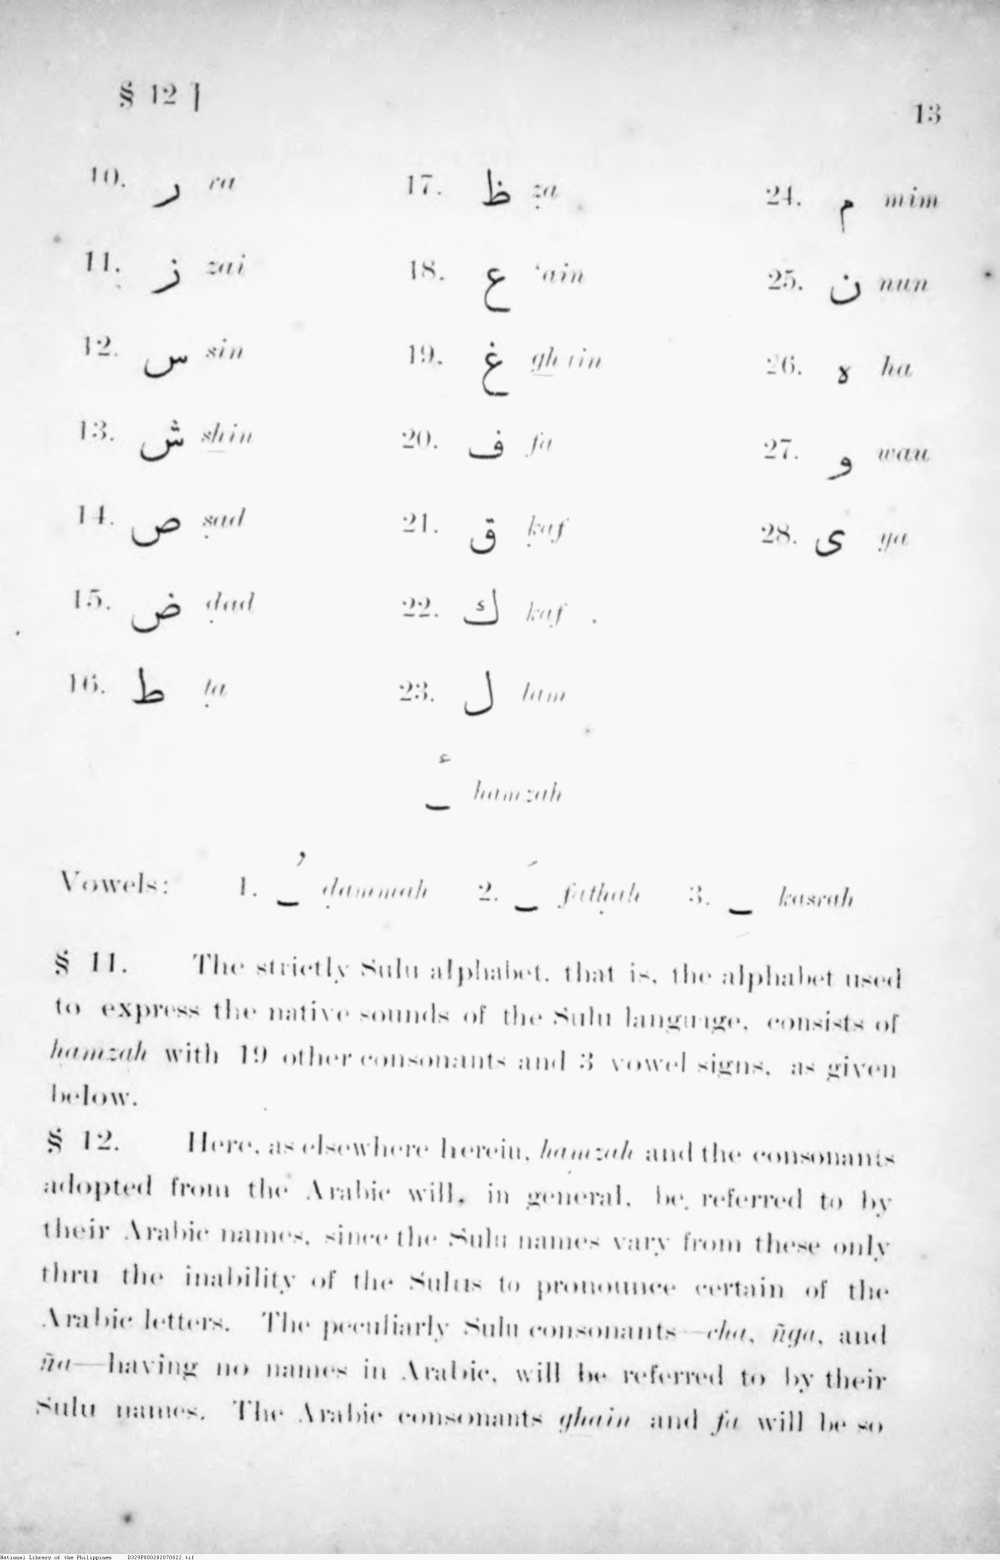 § 12 ]
13
10. ر ra 17. ظ ẓa 24. م mim
11. ز zai 18. ع ‘ain 25. ن nun
12. س sin 19. غ ghain 26. ه ha
13. ش shin 20. ف fa 27. و wau
14. ص ṣad 21. ق ḳaf 28. ى ya
15. ض ḍad 22. ك kaf
16. ط ṭa 23. ل lam
ء hamzah
Vowels: 1. ُ ḍammah 2. َ fatḥah 3. ِ kasrah
§ 11. The strictly Sulu alphabet, that is, the alphabet used
to express the native sounds of the Sulu language, consists of
hamzah with 19 other consonants and 3 vowel signs, as given
below.
§ 12. Here, as elsewhere herein, hamzah and the consonants
adopted from the Arabic will, in general, be referred to by
their Arabic names, since the Sulu names vary from these only
thru the inability of the Sulus to pronounce certain of the
Arabic letters. The peculiarly Sulu consonants—cha, ñga, and
ña—having no names in Arabic, will be referred to by their
Sulu names. The Arabic consonants ghain and fa will be so
National Library of the Philippines